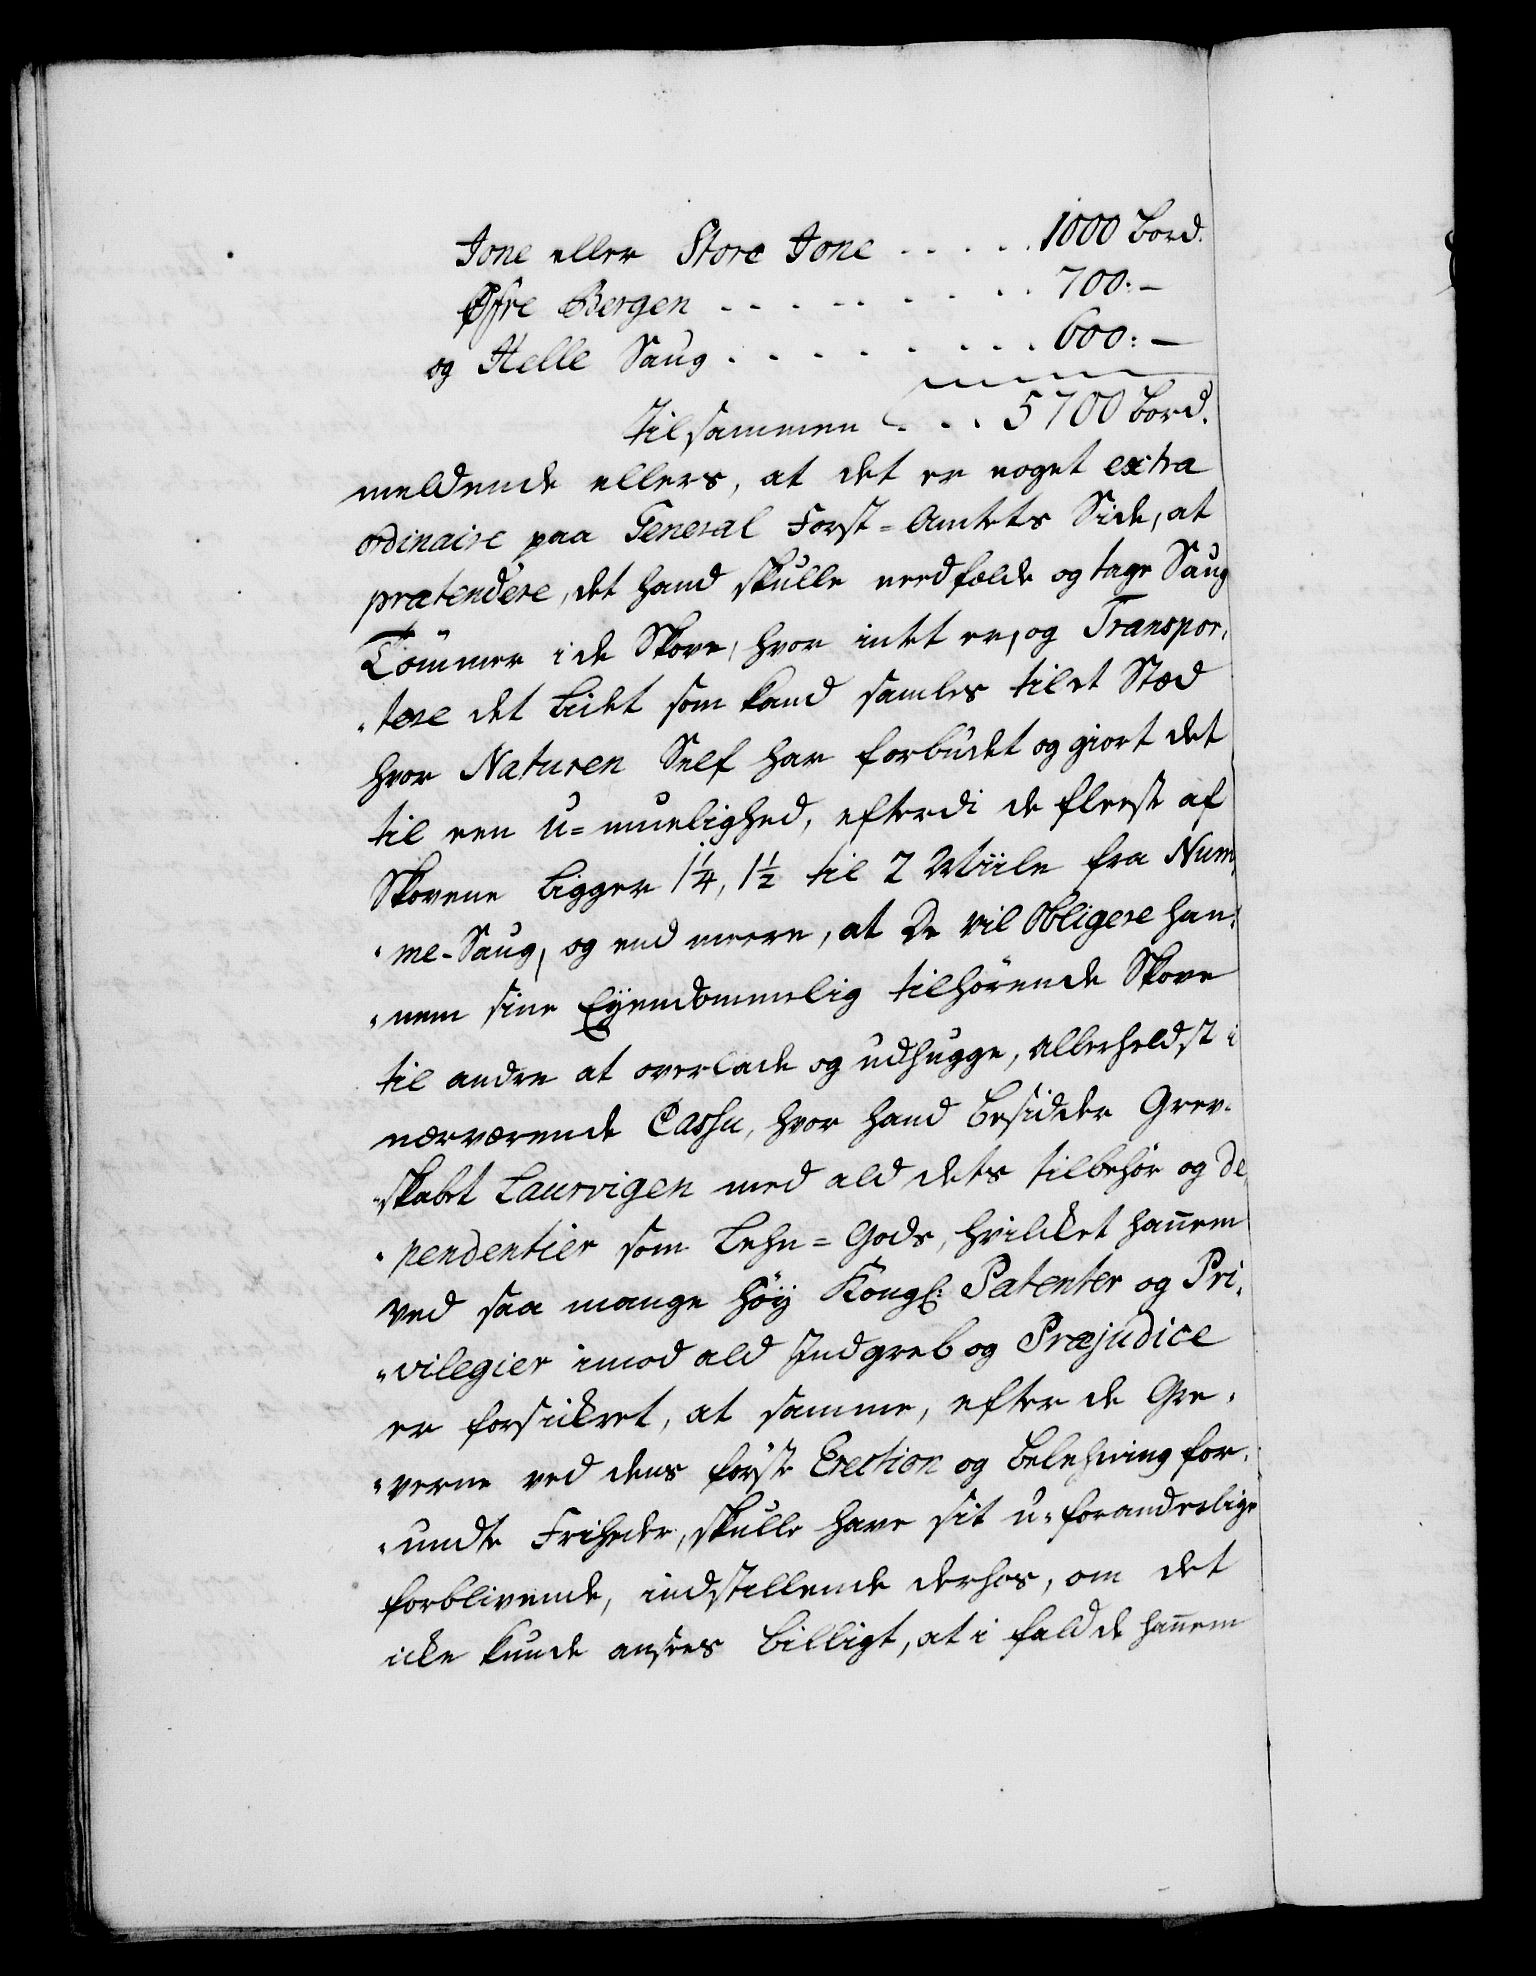 Jone eller Store Jone . . . . . 1000 Bord.
Øfre Bergen . . . . . . . . . 700:—
og Helle Saug . . . . . . . . . 600:—
tilsammen . . . 5700 Bord.
meldende ellers, at det er noget extra
ordinaire paa General Forst=Amtets Side, at
prætendere, det hand skulle nedfælde og tage Saug
Tömmer i de Skove, hvor intet er, og Transpor,
„tere det Lidet som kand samles til et Stæd
hvor Naturen Self har forbudet og giort det
til een U=muelighed, efterdi de fleeste af
Skovene Ligger 1¼, 1½ til 2 Miile fra Num,
„me-Saug, og end meere, at De vil Obligere han:
„nem sine Eyendommelig tilhörende Skove
til andre at overlade og udhugge, allerheldst i
nærværende Cassu, hvor hand besidder Grev-
„skabet Laurvigen med ald dets tilbehör og De,
„pendentier som Lehn=Gods, hvilket hannem
ved saa mange höy Kongl: Patenter og Pri,
„vilegier imod ald Indgreb og Præjudice
er forsickret, at samme, efter de Gre,
„verne ved dens förste Erection og Belehning for,
„undte Friheder, skulle have sit u=foranderlige
forblivende, indstillende derhos, om det
icke kunde ansees billigt, at i fald de hannem